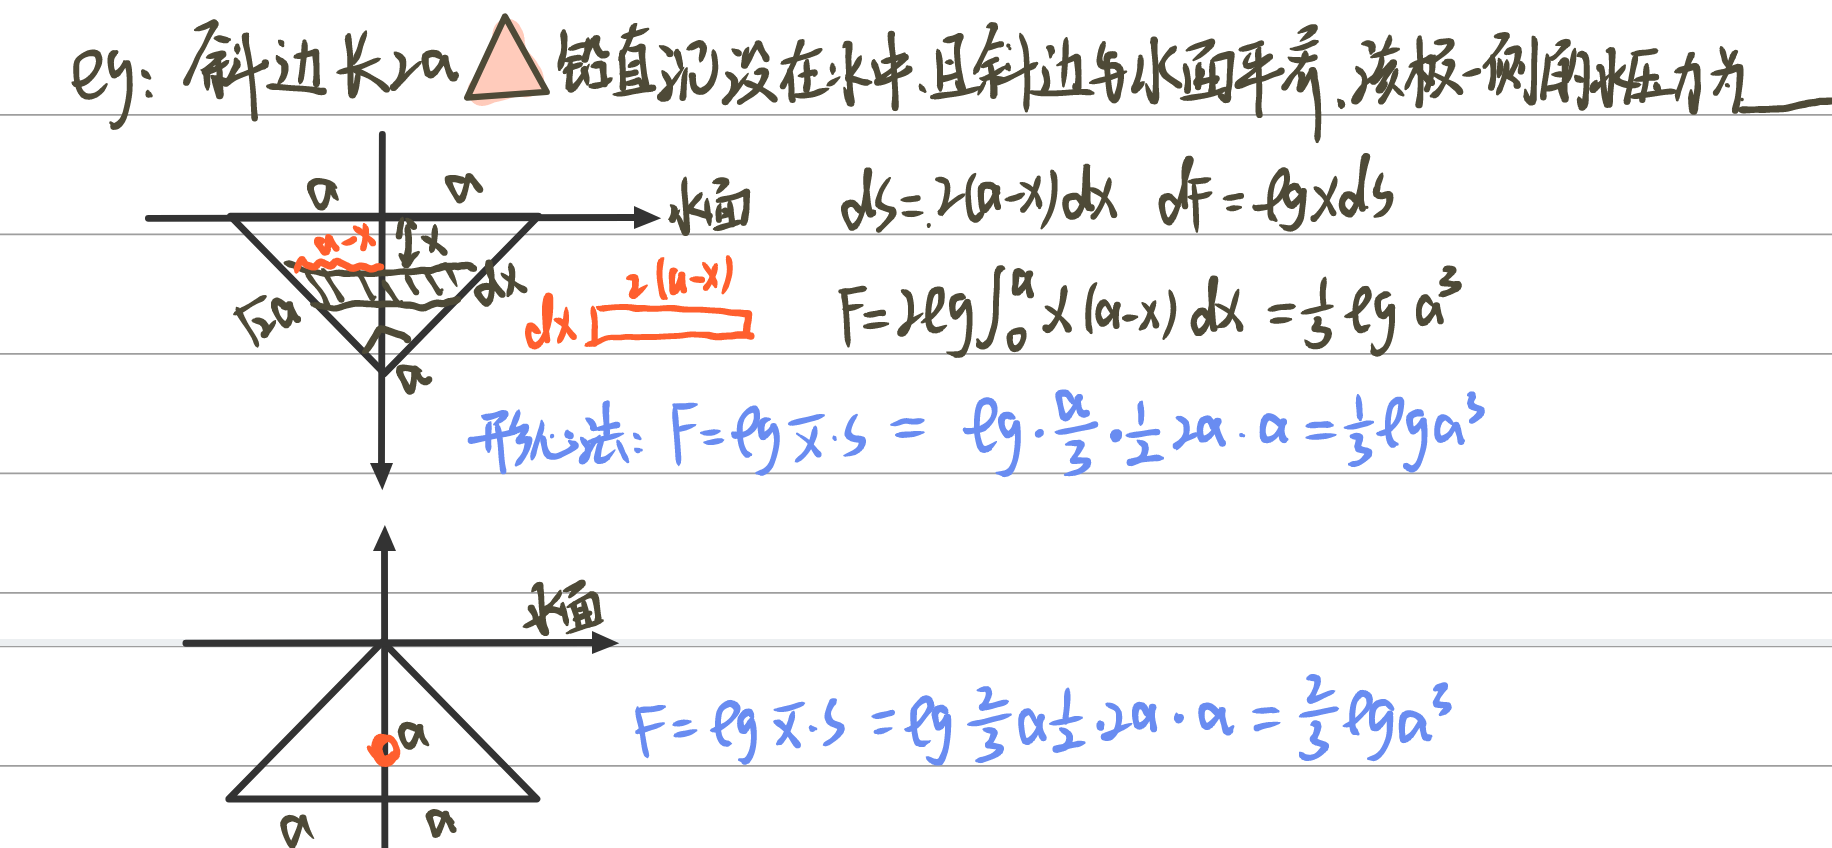 eg: 斜边长2a △ 铅直沉没在水中,且斜边与水面平齐.该板一侧的水压力为___
a a 水面
a-x x
√2a dx
a
dx 2(a-x)
ds=2(a-x)dx dF=ρgxds
F=2ρg∫₀ᵃ x(a-x)dx = 1/3 ρg a³
形心法: F=ρg x̄·s = ρg·a/3·1/2 2a·a = 1/3 ρga³
水面
a
a a
F=ρg x̄·s = ρg 2/3 a 1/2·2a·a = 2/3 ρga³